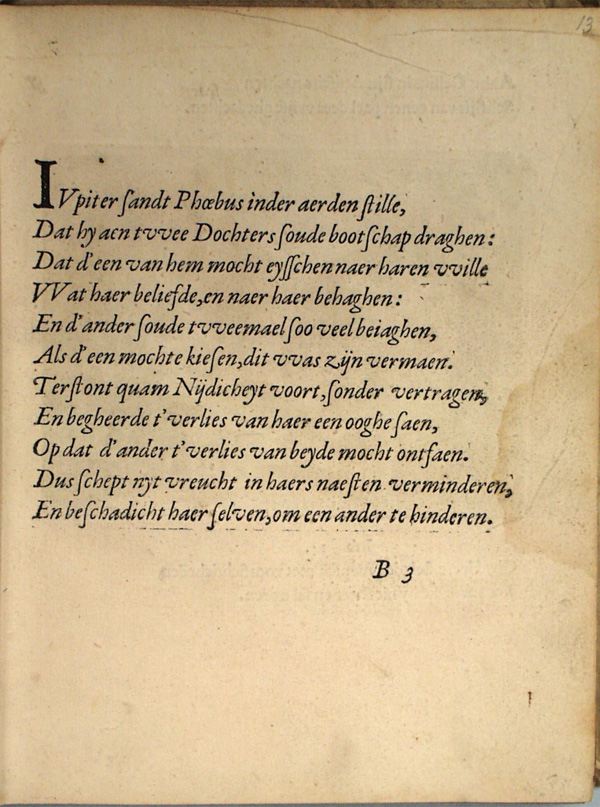 13
IVpiter ſandt Phœbus inder aerden ſtille,
Dat hy aen tvvee Dochters ſoude bootſchap draghen:
Dat d'een van hem mocht eyſſchen naer haren vville
VVat haer beliefde, en naer haer behaghen:
En d'ander ſoude tvveemael ſoo veel beiaghen,
Als d'een mochte kieſen, dit vvas zijn vermaen.
Terſtont quam Nijdicheyt voort, ſonder vertragen,
En begheerde t'verlies van haer een ooghe ſaen,
Op dat d'ander t'verlies van beyde mocht ontfaen.
Dus ſchept nyt vreucht in haers naeſten verminderen,
En beſchadicht haer ſelven, om een ander te hinderen.
B 3